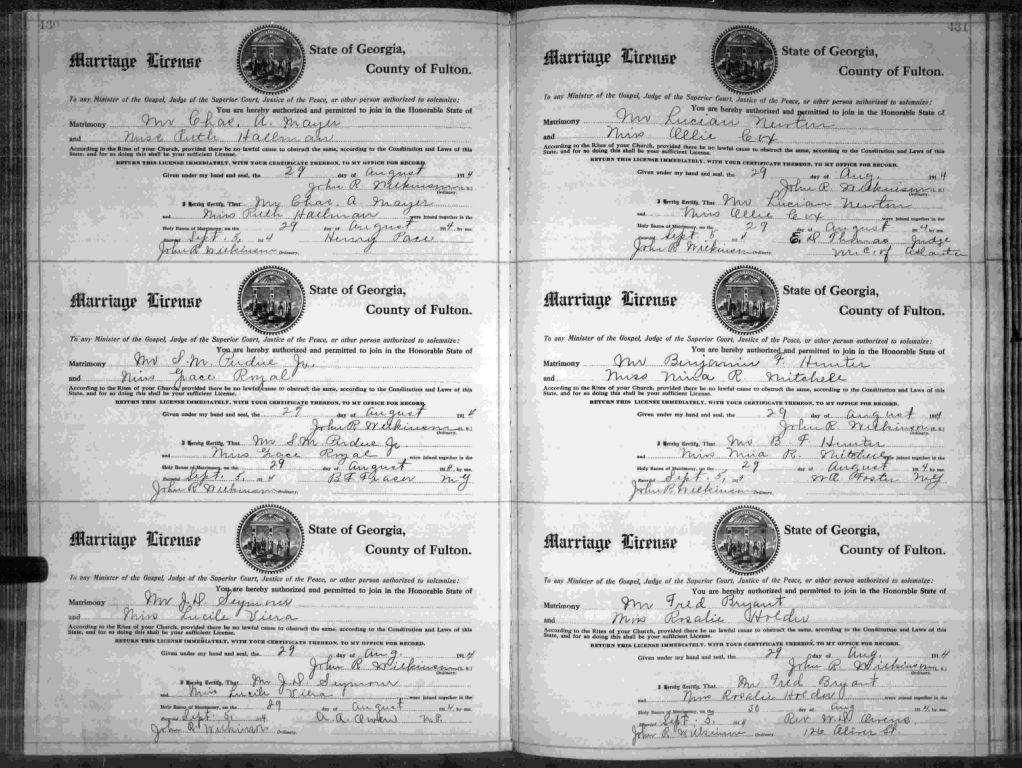 430
Marriage License
State of Georgia,
County of Fulton.
To any Minister of the Gospel, Judge of the Superior Court, Justice of the Peace, or other person authorized to solemnize:
You are hereby authorized and permitted to join in the Honorable State of
Matrimony Mr Chas. A. Mayer
and Miss Ruth Hailman
According to the Rites of your Church, provided there be no lawful cause to obstruct the same, according to the Constitution and Laws of this
State, and for so doing this shall be your sufficient License.
RETURN THIS LICENSE IMMEDIATELY, WITH YOUR CERTIFICATE THEREON, TO MY OFFICE FOR RECORD.
Given under my hand and seal, the 29 day of August 1914
John R. Wilkinson
Ordinary.
I Hereby Certify, That Mr Chas. A. Mayer
and Miss Ruth Hailman were joined together in the
Holy Bonds of Matrimony, on the 29 day of August 1914, by me.
Recorded Sept. 5, 1914 Henry Pace
John R. Wilkinson Ordinary.
Marriage License
State of Georgia,
County of Fulton.
To any Minister of the Gospel, Judge of the Superior Court, Justice of the Peace, or other person authorized to solemnize:
You are hereby authorized and permitted to join in the Honorable State of
Matrimony Mr S. M. Perdue Jr.
and Miss Grace Royal
According to the Rites of your Church, provided there be no lawful cause to obstruct the same, according to the Constitution and Laws of this
State, and for so doing this shall be your sufficient License.
RETURN THIS LICENSE IMMEDIATELY, WITH YOUR CERTIFICATE THEREON, TO MY OFFICE FOR RECORD.
Given under my hand and seal, the 29 day of August 1914
John R. Wilkinson
Ordinary.
I Hereby Certify, That Mr S. M. Perdue Jr
and Miss Grace Royal were joined together in the
Holy Bonds of Matrimony, on the 29 day of August 1914, by me.
Recorded Sept. 5, 1914 B F Fraser M G
John R. Wilkinson Ordinary.
Marriage License
State of Georgia,
County of Fulton.
To any Minister of the Gospel, Judge of the Superior Court, Justice of the Peace, or other person authorized to solemnize:
You are hereby authorized and permitted to join in the Honorable State of
Matrimony Mr J. D. Seymour
and Miss Lucile Viera
According to the Rites of your Church, provided there be no lawful cause to obstruct the same, according to the Constitution and Laws of this
State, and for so doing this shall be your sufficient License.
RETURN THIS LICENSE IMMEDIATELY, WITH YOUR CERTIFICATE THEREON, TO MY OFFICE FOR RECORD.
Given under my hand and seal, the 29 day of Aug. 1914
John R. Wilkinson
Ordinary.
I Hereby Certify, That Mr J. D. Seymour
and Miss Lucile Viera were joined together in the
Holy Bonds of Matrimony, on the 29 day of August 1914, by me.
Recorded Sept. 5, 1914 A. A. Owen
John R Wilkinson Ordinary.
431
Marriage License
State of Georgia,
County of Fulton.
To any Minister of the Gospel, Judge of the Superior Court, Justice of the Peace, or other person authorized to solemnize:
You are hereby authorized and permitted to join in the Honorable State of
Matrimony Mr Lucian Newton
and Miss Ollie Cox
According to the Rites of your Church, provided there be no lawful cause to obstruct the same, according to the Constitution and Laws of this
State, and for so doing this shall be your sufficient License.
RETURN THIS LICENSE IMMEDIATELY, WITH YOUR CERTIFICATE THEREON, TO MY OFFICE FOR RECORD.
Given under my hand and seal, the 29 day of Aug. 1914
John R. Wilkinson
Ordinary.
I Hereby Certify, That Mr Lucian Newton
and Miss Ollie Cox were joined together in the
Holy Bonds of Matrimony, on the 29 day of August 1914, by me.
Recorded Sept 5 1914 E. D. Thomas Judge
John R. Wilkinson Ordinary. M. C. of Atlanta
Marriage License
State of Georgia,
County of Fulton.
To any Minister of the Gospel, Judge of the Superior Court, Justice of the Peace, or other person authorized to solemnize:
You are hereby authorized and permitted to join in the Honorable State of
Matrimony Mr Binjamin F Hunter
and Miss Nina R. Mitchell
According to the Rites of your Church, provided there be no lawful cause to obstruct the same, according to the Constitution and Laws of this
State, and for so doing this shall be your sufficient License.
RETURN THIS LICENSE IMMEDIATELY, WITH YOUR CERTIFICATE THEREON, TO MY OFFICE FOR RECORD.
Given under my hand and seal, the 29 day of August 1914
John R. Wilkinson
Ordinary.
I Hereby Certify, That Mr B F Hunter
and Miss Nina R. Mitchell were joined together in the
Holy Bonds of Matrimony, on the 29 day of August 1914, by me.
Recorded Sept. 5, 1914 Foster M G
John R. Wilkinson Ordinary.
Marriage License
State of Georgia,
County of Fulton.
To any Minister of the Gospel, Judge of the Superior Court, Justice of the Peace, or other person authorized to solemnize:
You are hereby authorized and permitted to join in the Honorable State of
Matrimony Mr Fred Bryant
and Miss Rosalie Holder
According to the Rites of your Church, provided there be no lawful cause to obstruct the same, according to the Constitution and Laws of this
State, and for so doing this shall be your sufficient License.
RETURN THIS LICENSE IMMEDIATELY, WITH YOUR CERTIFICATE THEREON, TO MY OFFICE FOR RECORD.
Given under my hand and seal, the 29 day of Aug. 1914
John R. Wilkinson
Ordinary.
I Hereby Certify, That Mr Fred Bryant
and Miss Rosalie Holder were joined together in the
Holy Bonds of Matrimony, on the 30 day of Aug 1914, by me.
Recorded Sept. 5, 1914 Rev. W. D. Owens.
John R. Wilkinson Ordinary. 126 St.